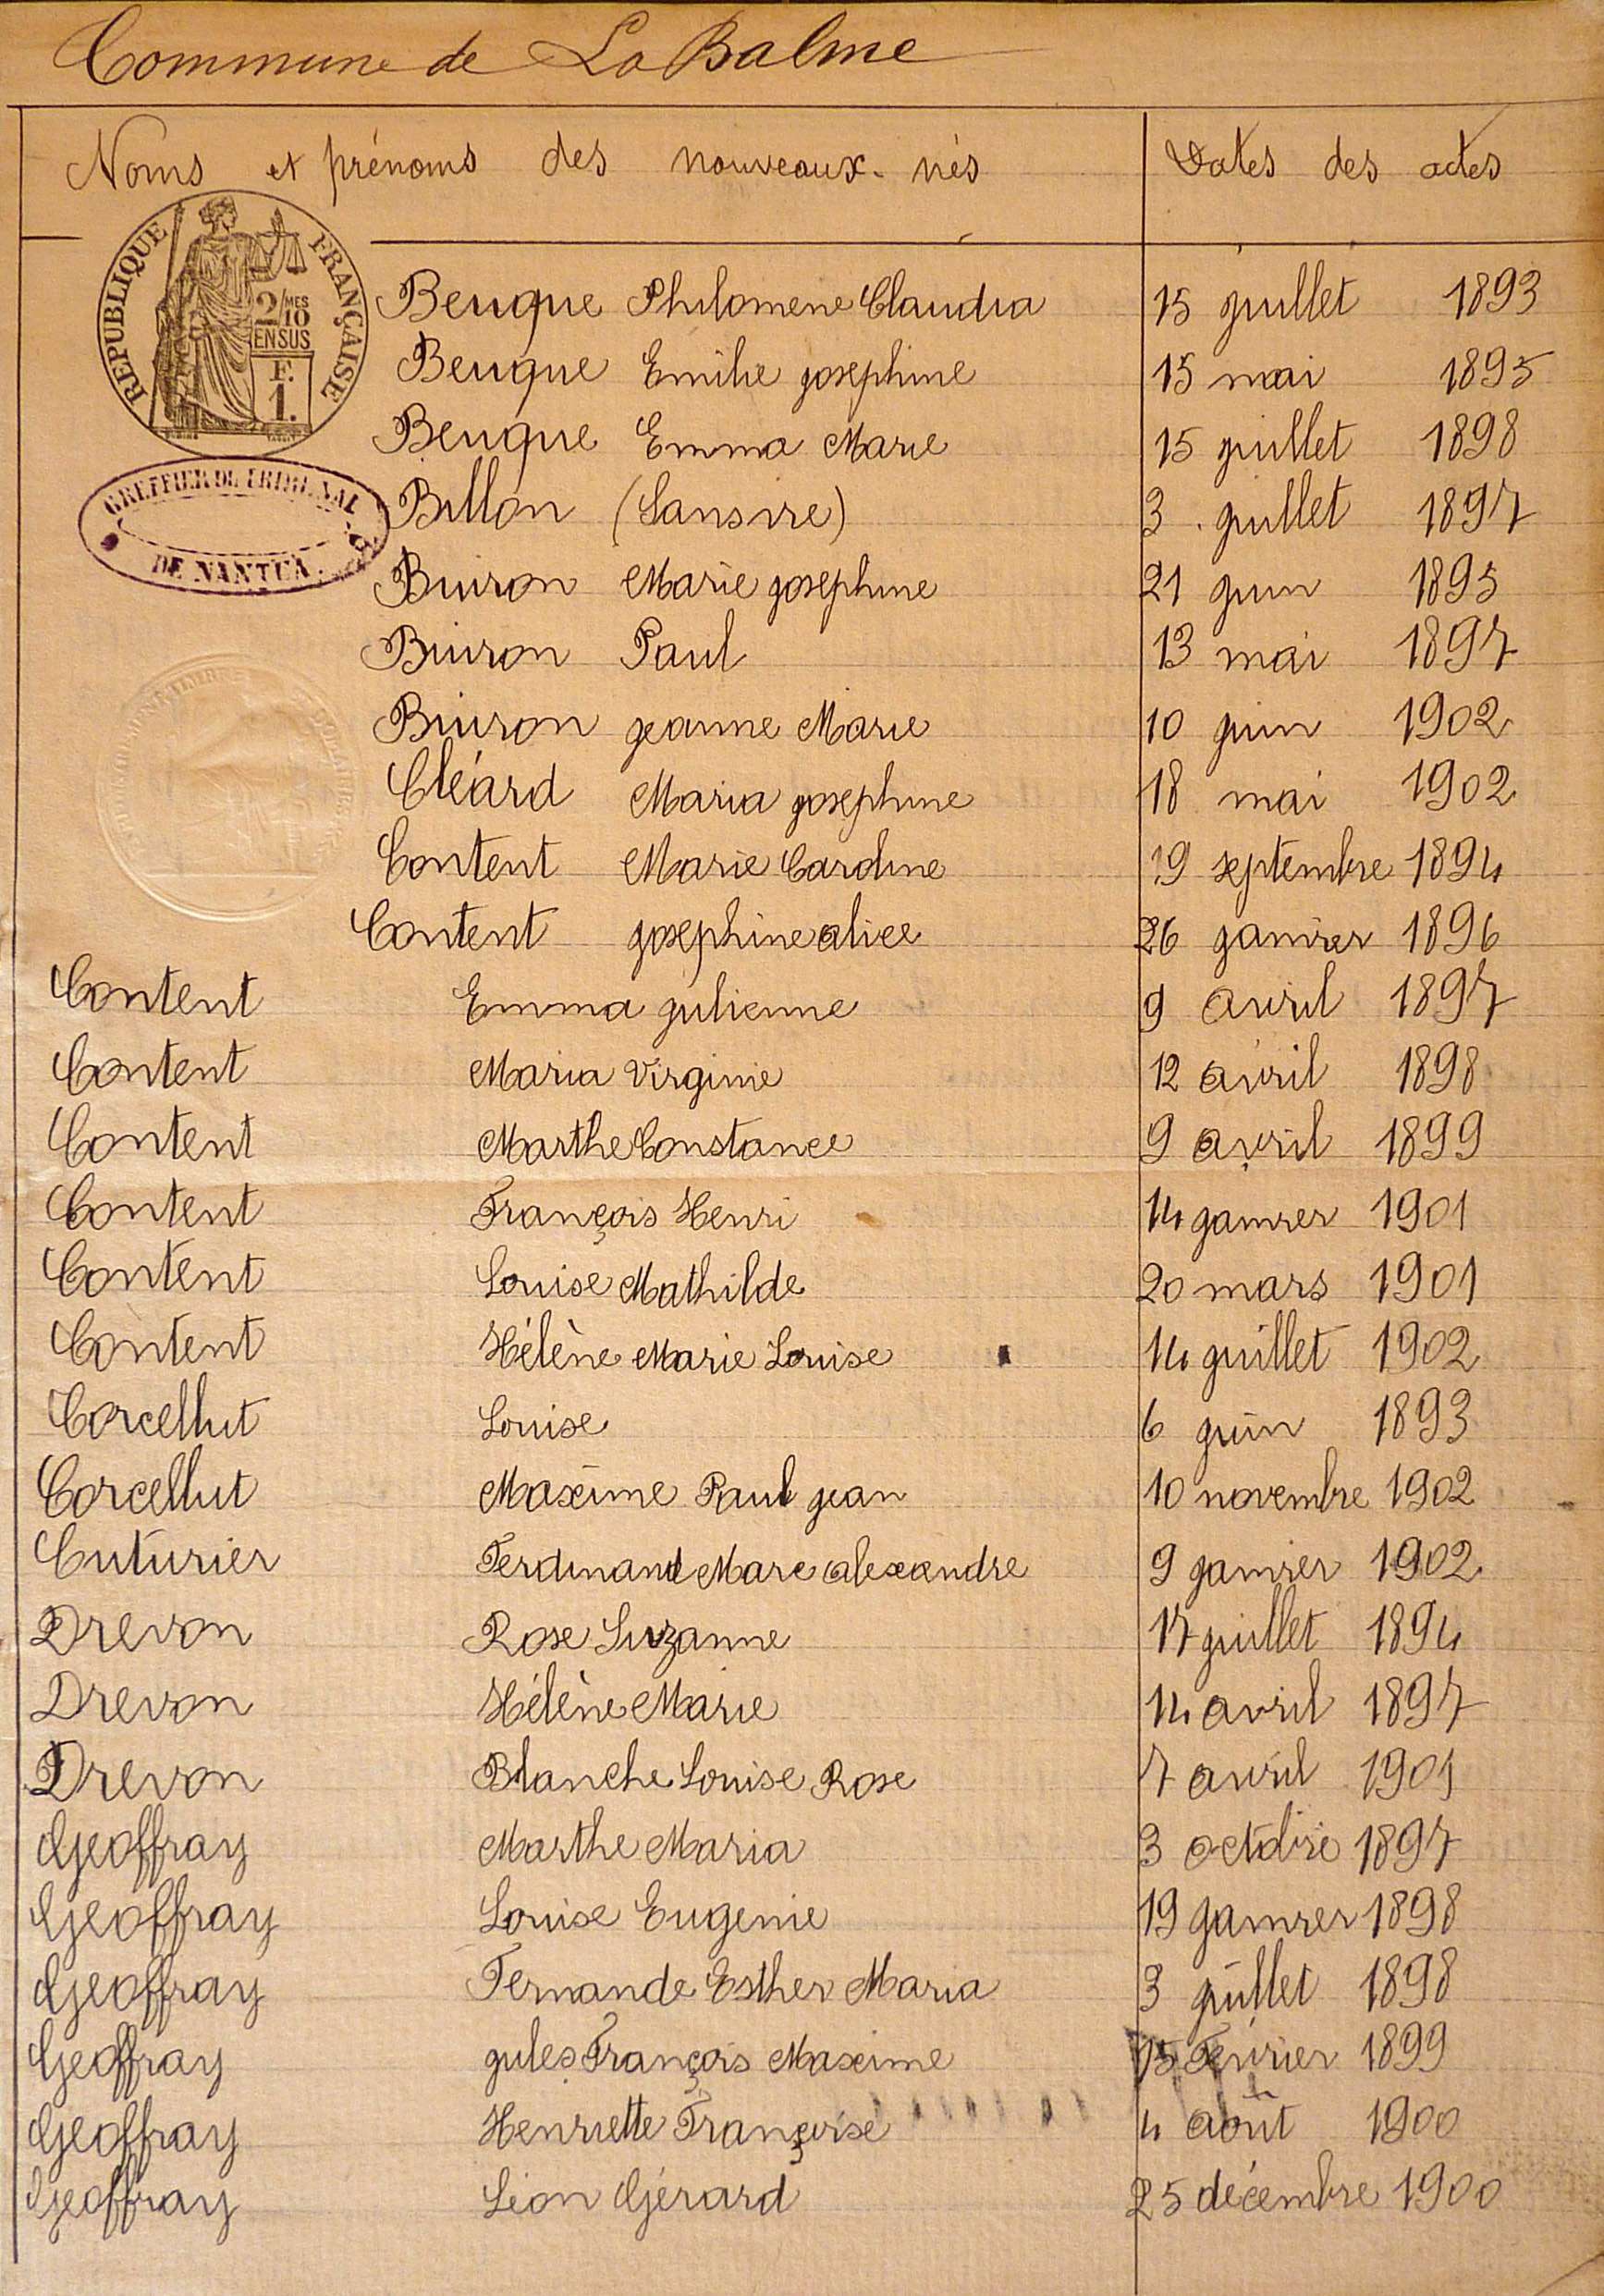 Commune de La Balme
Noms et prénoms des nouveaux-nés Dates des actes
REPUBLIQUE FRANÇAISE
2/10 MES
EN SUS
F.
1.
GREFFIER DU TRIBUNAL
DE NANTUA
Beuque Philomene Claudia 15 juillet 1893
Beuque Emilie josephine 15 mai 1895
Beuque Emma Marie 15 juillet 1898
Billon (Sansvie) 3 juillet 1897
Buiron Marie josephine 21 juin 1895
Buiron Paul 13 mai 1897
Buiron jeanne Marie 10 juin 1902
Cléard Maria josephine 18 mai 1902
Content Marie Caroline 19 septembre 1894
Content josephine alice 26 janvier 1896
Content Emma julienne 9 avril 1897
Content Maria Virginie 12 avril 1898
Content Marthe Constance 9 avril 1899
Content François Henri 14 janvier 1901
Content Louise Mathilde 20 mars 1901
Content Hélène Marie Louise 14 juillet 1902
Corcellut Louise 6 juin 1893
Corcellut Maxime Paul jean 10 novembre 1902
Cuturier Ferdinand Marc alexandre 9 janvier 1902
Drevon Rose Suzanne 17 juillet 1894
Drevon Hélène Marie 14 avril 1897
Drevon Blanche Louise Rose 7 avril 1901
Geoffray Marthe Maria 3 octobre 1897
Geoffray Louise Eugenie 19 janvier 1898
Geoffray Fernande Esther Maria 3 juillet 1898
Geoffray jules François Maxime 15 Février 1899
Geoffray Henriette Françoise 4 août 1900
Geoffray Léon Gérard 25 décembre 1900